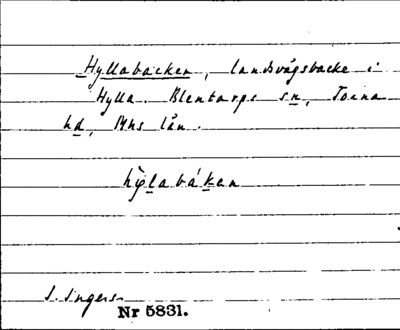 Hyllabacken, landsvägsbacke i
Hylla. Blentarps sn, Torna
hd, Mhs län.
hỳlabáken
S. Ingers.
Nr 5831.